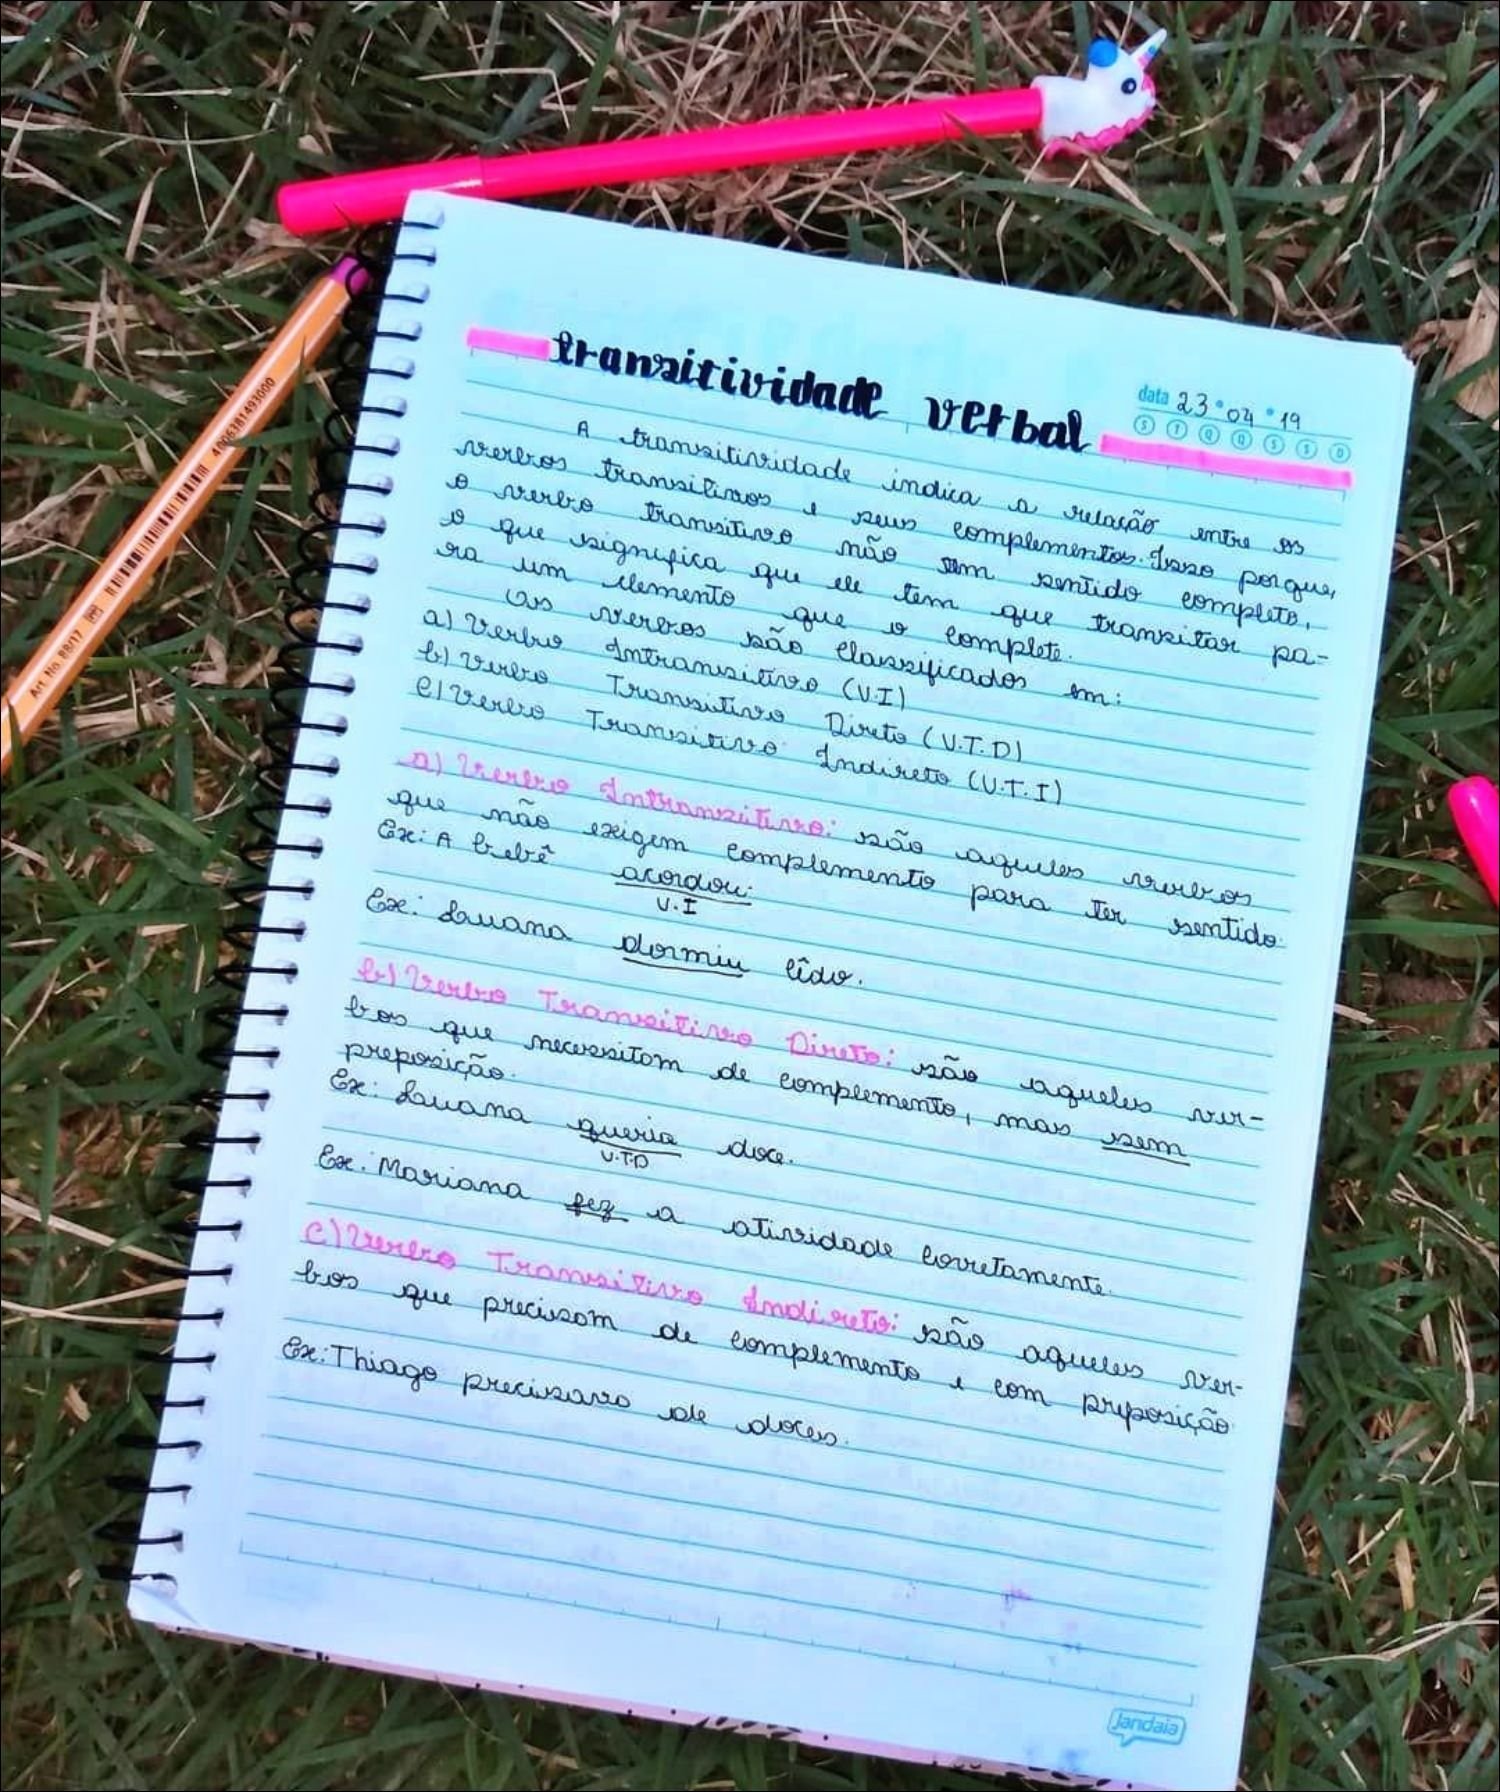 transitividade verbal
data 23 • 04 • 19
S T Q Q S S D
A transitividade indica a relação entre os
verbos transitivos e seus complementos. Isso porque,
o verbo transitivo não tem sentido completo,
o que significa que ele tem que transitar pa-
ra um elemento que o complete.
Os verbos são classificados em:
a) Verbo Intransitivo (V.I)
b) Verbo Transitivo Direto (V.T.D)
c) Verbo Transitivo Indireto (V.T.I)
a) Verbo Intransitivo: são aqueles verbos
que não exigem complemento para ter sentido.
Ex: A bebê acordou.
V.I
Ex: Luana dormiu cêdo.
b) Verbo Transitivo Direto: são aqueles ver-
bos que necessitam de complemento, mas sem
preposição.
Ex: Luana queria doce.
V.T.D
Ex: Mariana fez a atividade corretamente.
c) Verbo Transitivo Indireto: são aqueles ver-
bos que precisam de complemento e com preposição.
Ex: Thiago precisava de doces.
jandaia
Art. No. 88/17
4006381493000